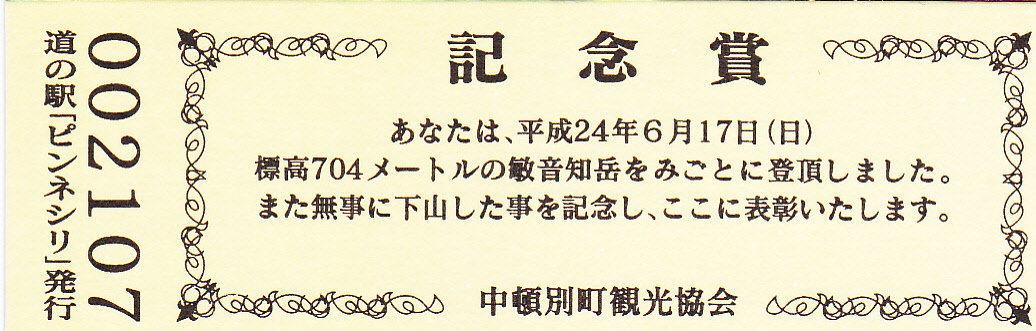 記念賞
あなたは、平成24年6月17日(日)
標高704メートルの敏音知岳をみごとに登頂しました。
また無事に下山した事を記念し、ここに表彰いたします。
中頓別町観光協会
002107
道の駅「ピンネシリ」発行